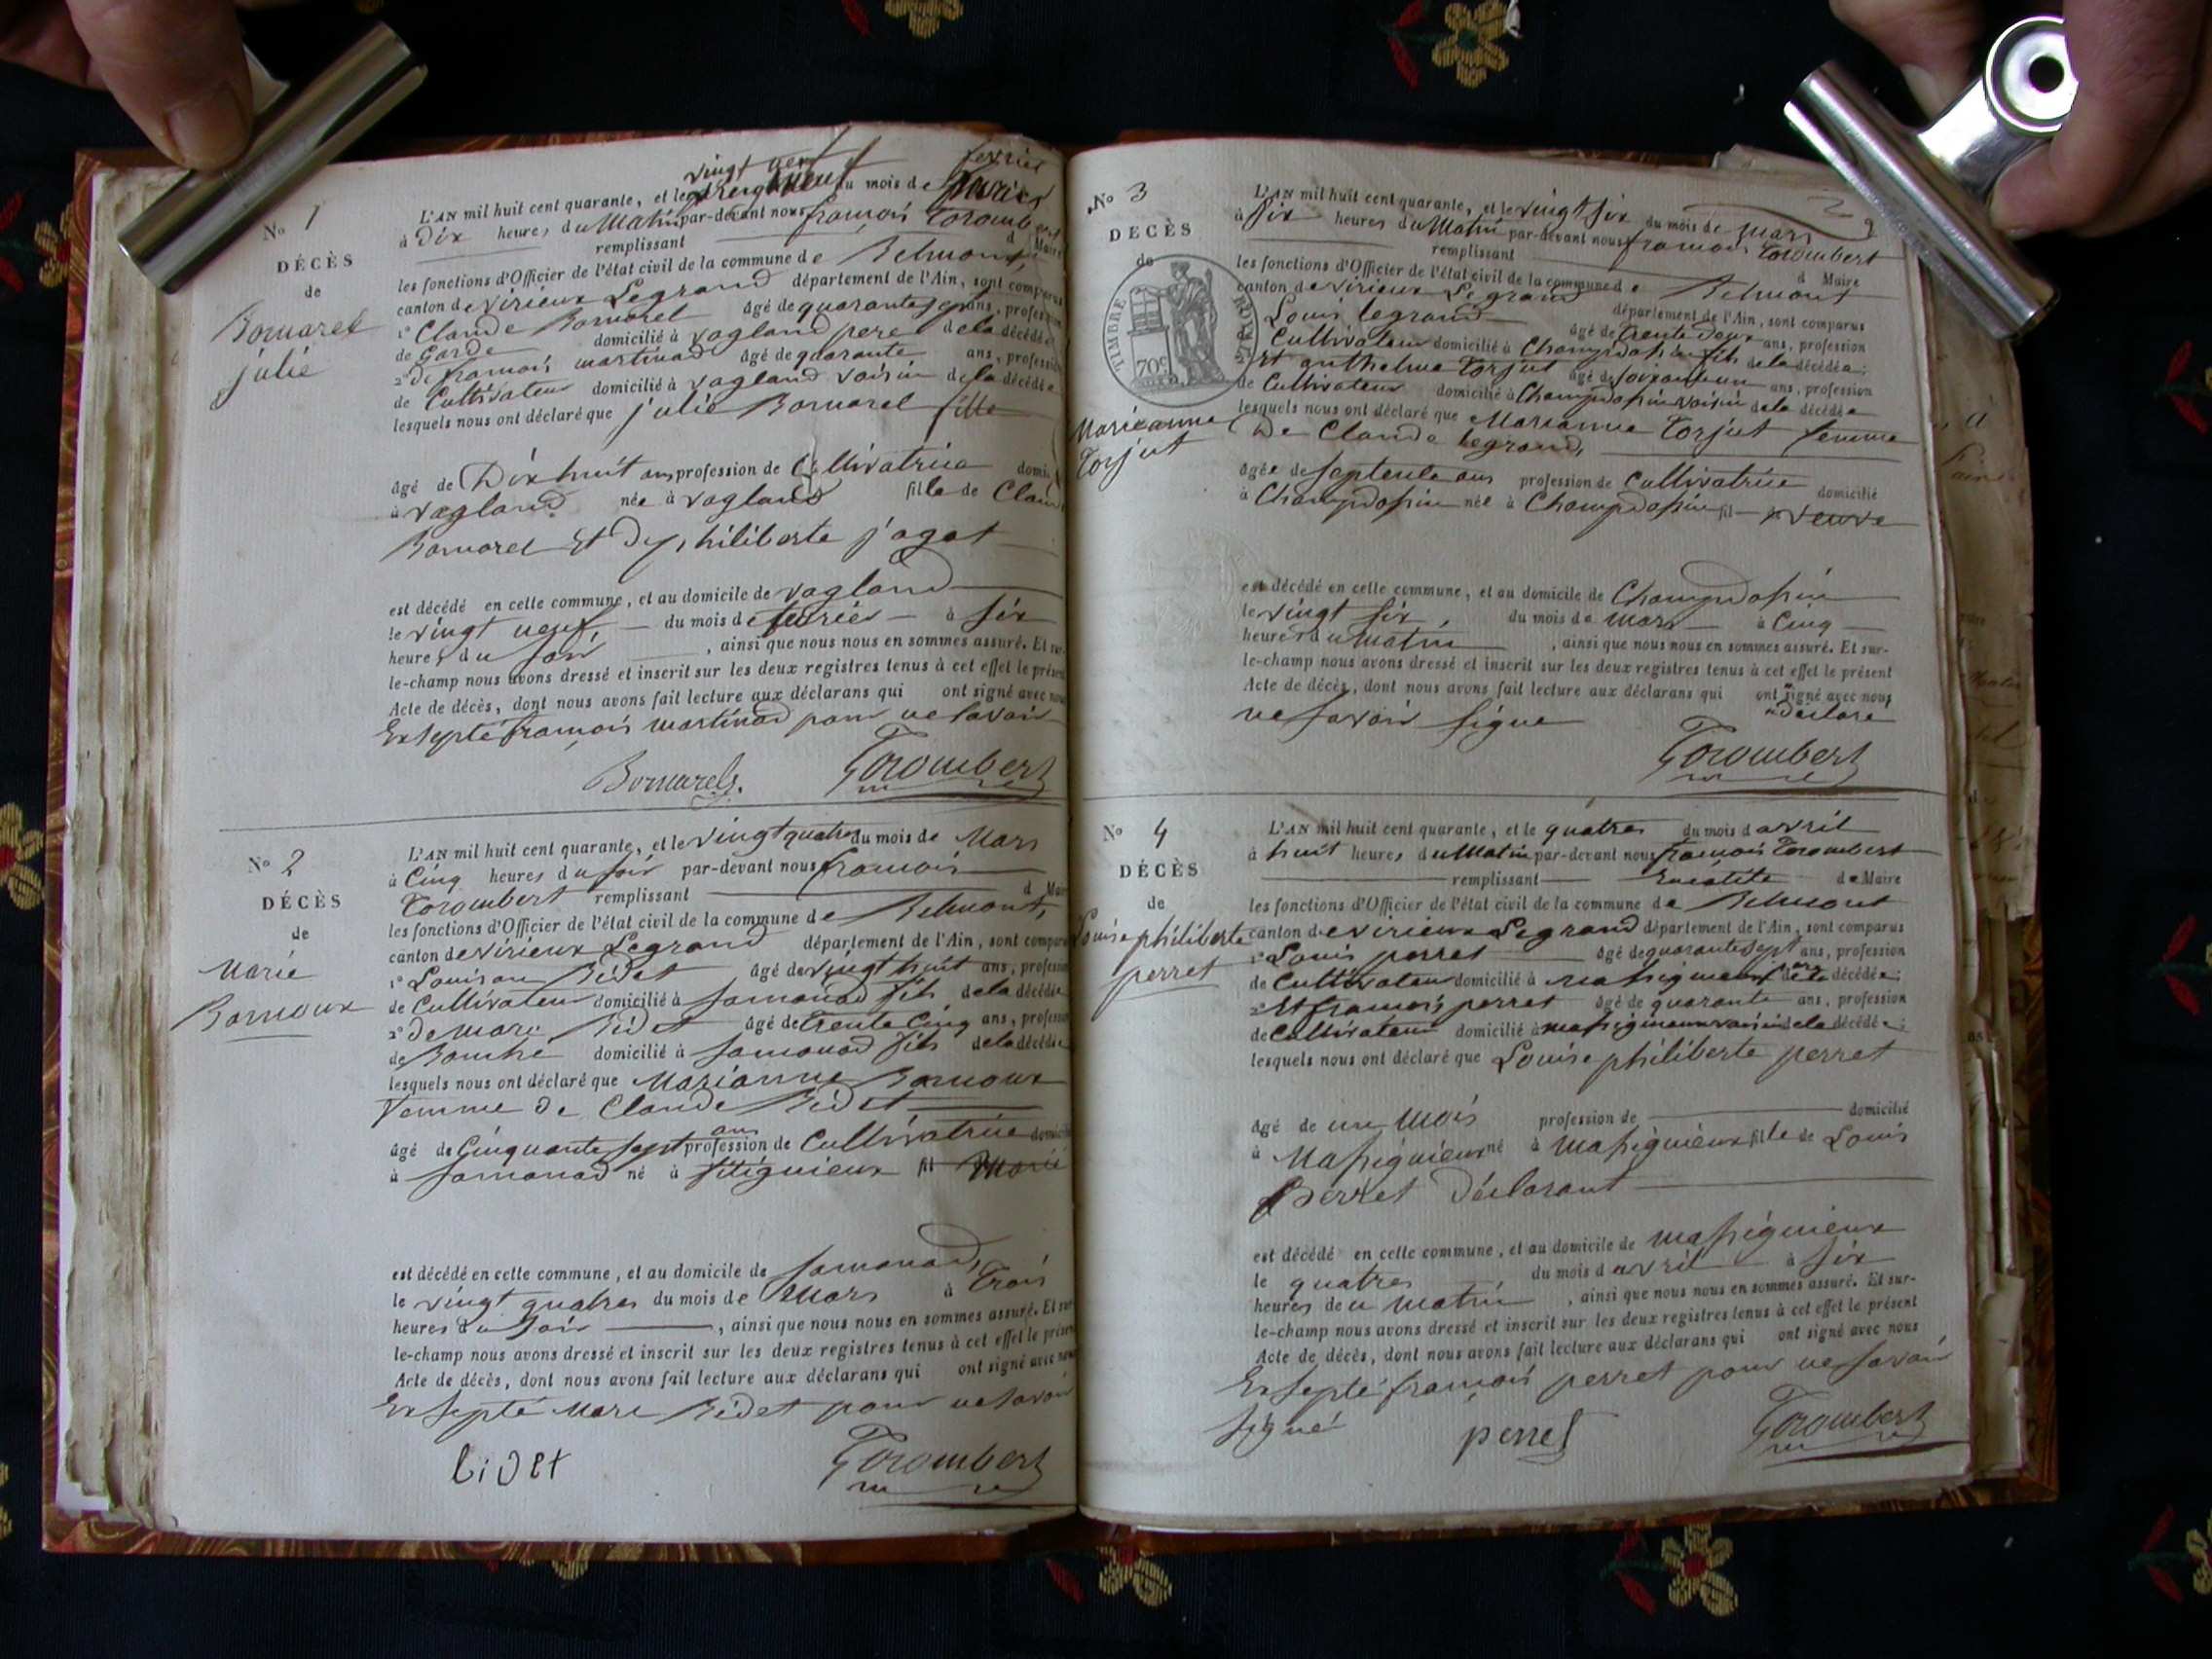 No 1
DÉCÈS
de
Bornarel
julie
vingt neuf fevrier
L'AN mil huit cent quarante, et le du mois de
à Dix heures du Matin par-devant nous françois Torombert
remplissant d Maire
les fonctions d'Officier de l'état civil de la commune de Belmont,
canton de virieux Legrand département de l'Ain, sont comparus
1° Claude Bornarel âgé de quarante sept ans, profession
de Garde domicilié à vogland pere de la décédée
2° De françois martinod âgé de quarante ans, profession
de Cultivateur domicilié à vogland voisin de la décédée
lesquels nous ont déclaré que julie Bornarel fille
âgé de Dix huit ans profession de Cultivatrice domi
à vogland née à vogland fille de Claude
Bornarel Et De philiberte jagot
est décédé en cette commune, et au domicile de vogland
le vingt neuf, du mois de fevrier à six
heures du soir, ainsi que nous nous en sommes assuré. Et sur-
le-champ nous avons dressé et inscrit sur les deux registres tenus à cet effet le présent
Acte de décès, dont nous avons fait lecture aux déclarans qui ont signé avec nous
Exsepté françois martinod pour ne savoir
Bornarel. Torombert
No 2
DÉCÈS
de
Marie
Bornoux
L'AN mil huit cent quarante, et le vingt quatres du mois de Mars
à Cinq heures du soir par-devant nous françois
Torombert remplissant d Maire
les fonctions d'Officier de l'état civil de la commune de Belmont,
canton de virieux Legrand département de l'Ain, sont comparus
1° Louison Bidet âgé de vingt huit ans, profession
de Cultivateur domicilié à Samonod fils de la décédée
2° De marc Bidet âgé de trente Cinq ans, profession
de domicilié à Samonod fils de la décédée
lesquels nous ont déclaré que Marianne Bornoux
femme de Claude Bidet
âgé de Cinquante sept ans profession de Cultivatrice domicilié
à Samonod né à fitignieux fil Marié
est décédé en cette commune, et au domicile de Samonod,
le vingt quatres du mois de Mars à Trois
heures du Soir, ainsi que nous nous en sommes assuré. Et sur-
le-champ nous avons dressé et inscrit sur les deux registres tenus à cet effet le présent
Acte de décès, dont nous avons fait lecture aux déclarans qui ont signé avec nous
Exsepté Marc Bidet pour ne savoir
bidet Torombert
No 3
DÉCÈS
de
TIMBRE ROYAL
70c
Marieanne
Torjut
L'AN mil huit cent quarante, et le vingt six du mois de mars
à six heures du Matin par-devant nous françois Torombert
remplissant d Maire
les fonctions d'Officier de l'état civil de la commune de Belmont
canton de virieux Legrand département de l'Ain, sont comparus
Louis legrand âgé de trente deux ans, profession
Cultivateur domicilié à Champdossin fils de la décédée;
2° Et anthelme Torjut âgé de soixante un ans, profession
de Cultivateur domicilié à Champdossin voisin de la décédée
lesquels nous ont déclaré que Marianne Torjut femme
De Claude legrand,
âgée de septente ans profession de Cultivatrice domicilié
à Champdossin née à Champdossin fil veuve
est décédé en cette commune, et au domicile de Champdossin
le vingt six, du mois de mars à Cinq
heures du matin, ainsi que nous nous en sommes assuré. Et sur-
le-champ nous avons dressé et inscrit sur les deux registres tenus à cet effet le présent
Acte de décès, dont nous avons fait lecture aux déclarans qui ont signé avec nous
ne savoir signe declare
Torombert
No 4
DÉCÈS
de
Louise philiberte
perret
L'AN mil huit cent quarante, et le quatres du mois d avril
à huit heures du Matin par-devant nous françois Torombert
remplissant de Maire
les fonctions d'Officier de l'état civil de la commune de Belmont
canton de virieux Legrand département de l'Ain, sont comparus
1° Louis perret âgé de quarante sept ans, profession
de Cultivateur domicilié à massignieux de la décédée;
2° Et françois perret âgé de quarante ans, profession
de Cultivateur domicilié à massignieux voisin de la décédée;
lesquels nous ont déclaré que Louise philiberte perret
âgé de un Mois profession de domicilié
à Massignieux né à Massignieux fille de Louis
Perret Déclarant
est décédé en cette commune, et au domicile de massignieux
le quatres du mois d avril à six
heures de u matin, ainsi que nous nous en sommes assuré. Et sur-
le-champ nous avons dressé et inscrit sur les deux registres tenus à cet effet le présent
Acte de décès, dont nous avons fait lecture aux déclarans qui ont signé avec nous
Exsepté françois perret pour ne savoir
signé perret Torombert